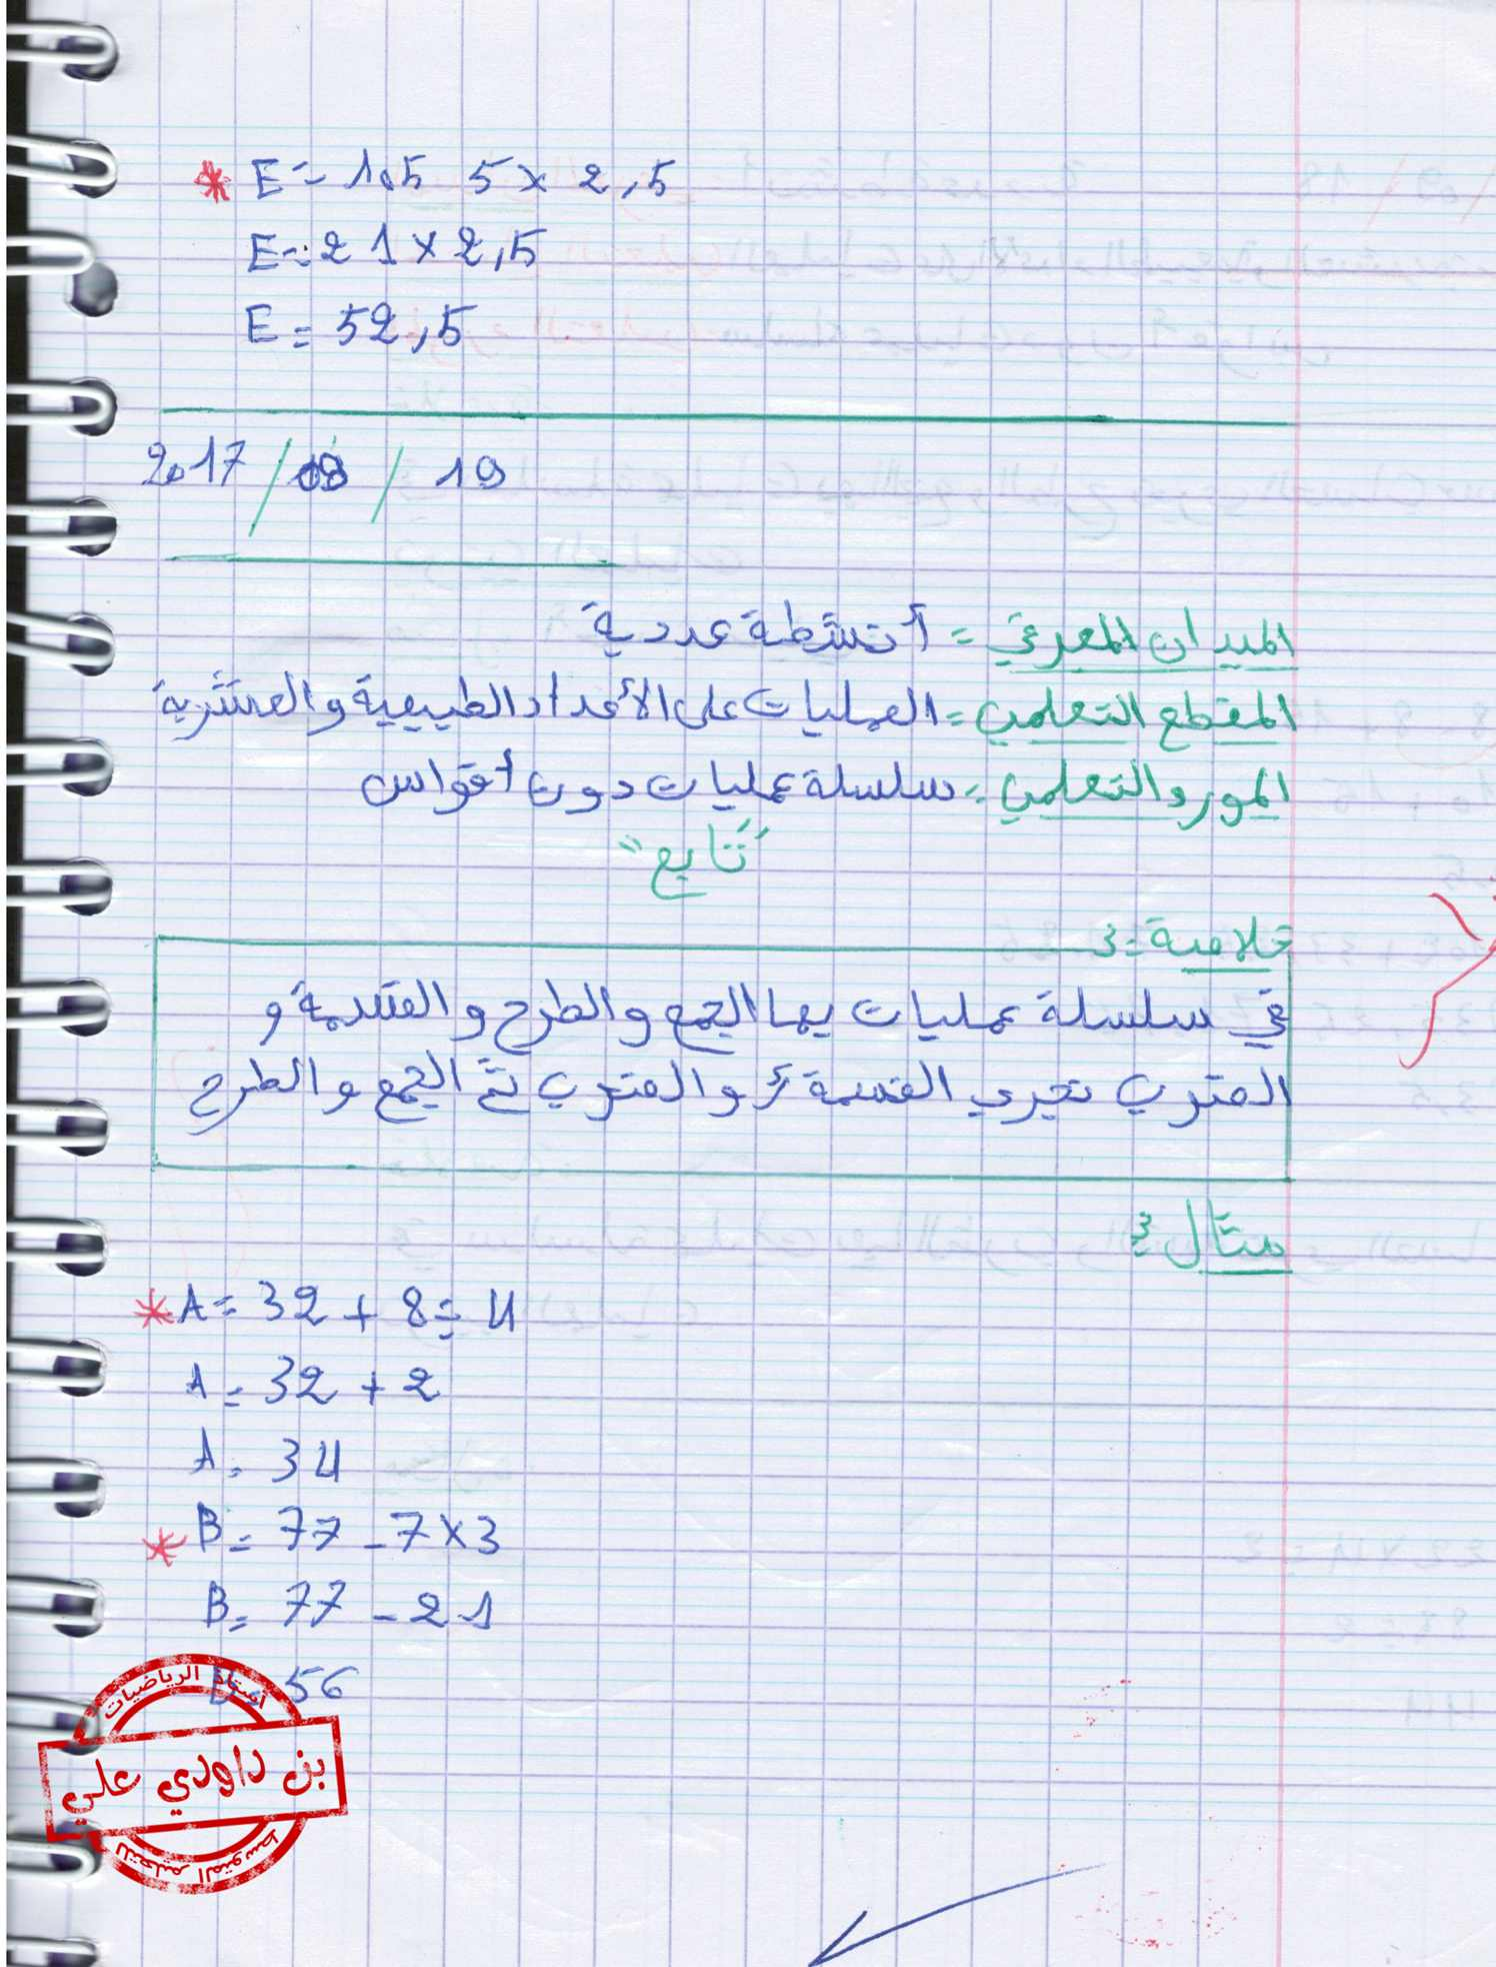 * E = 105 5 × 2,5
E = 21 × 2,5
E = 52,5
2017 / 09 / 19
الميدان المعرفي = أنشطة عددية
المقطع التعلمي = العمليات على الأعداد الطبيعية والعشرية
المورد التعلمي = سلسلة عمليات دون أقواس
"تابع"
خلاصة :
في سلسلة عمليات بها الجمع والطرح والقسمة و
الضرب نجري القسمة أو الضرب ثم الجمع والطرح
مثال :
* A = 32 + 8 ÷ 4
A = 32 + 2
A = 34
* B = 77 - 7 × 3
B = 77 - 21
B = 56
أستاذ الرياضيات
بن داودي علي
للتعليم المتوسط